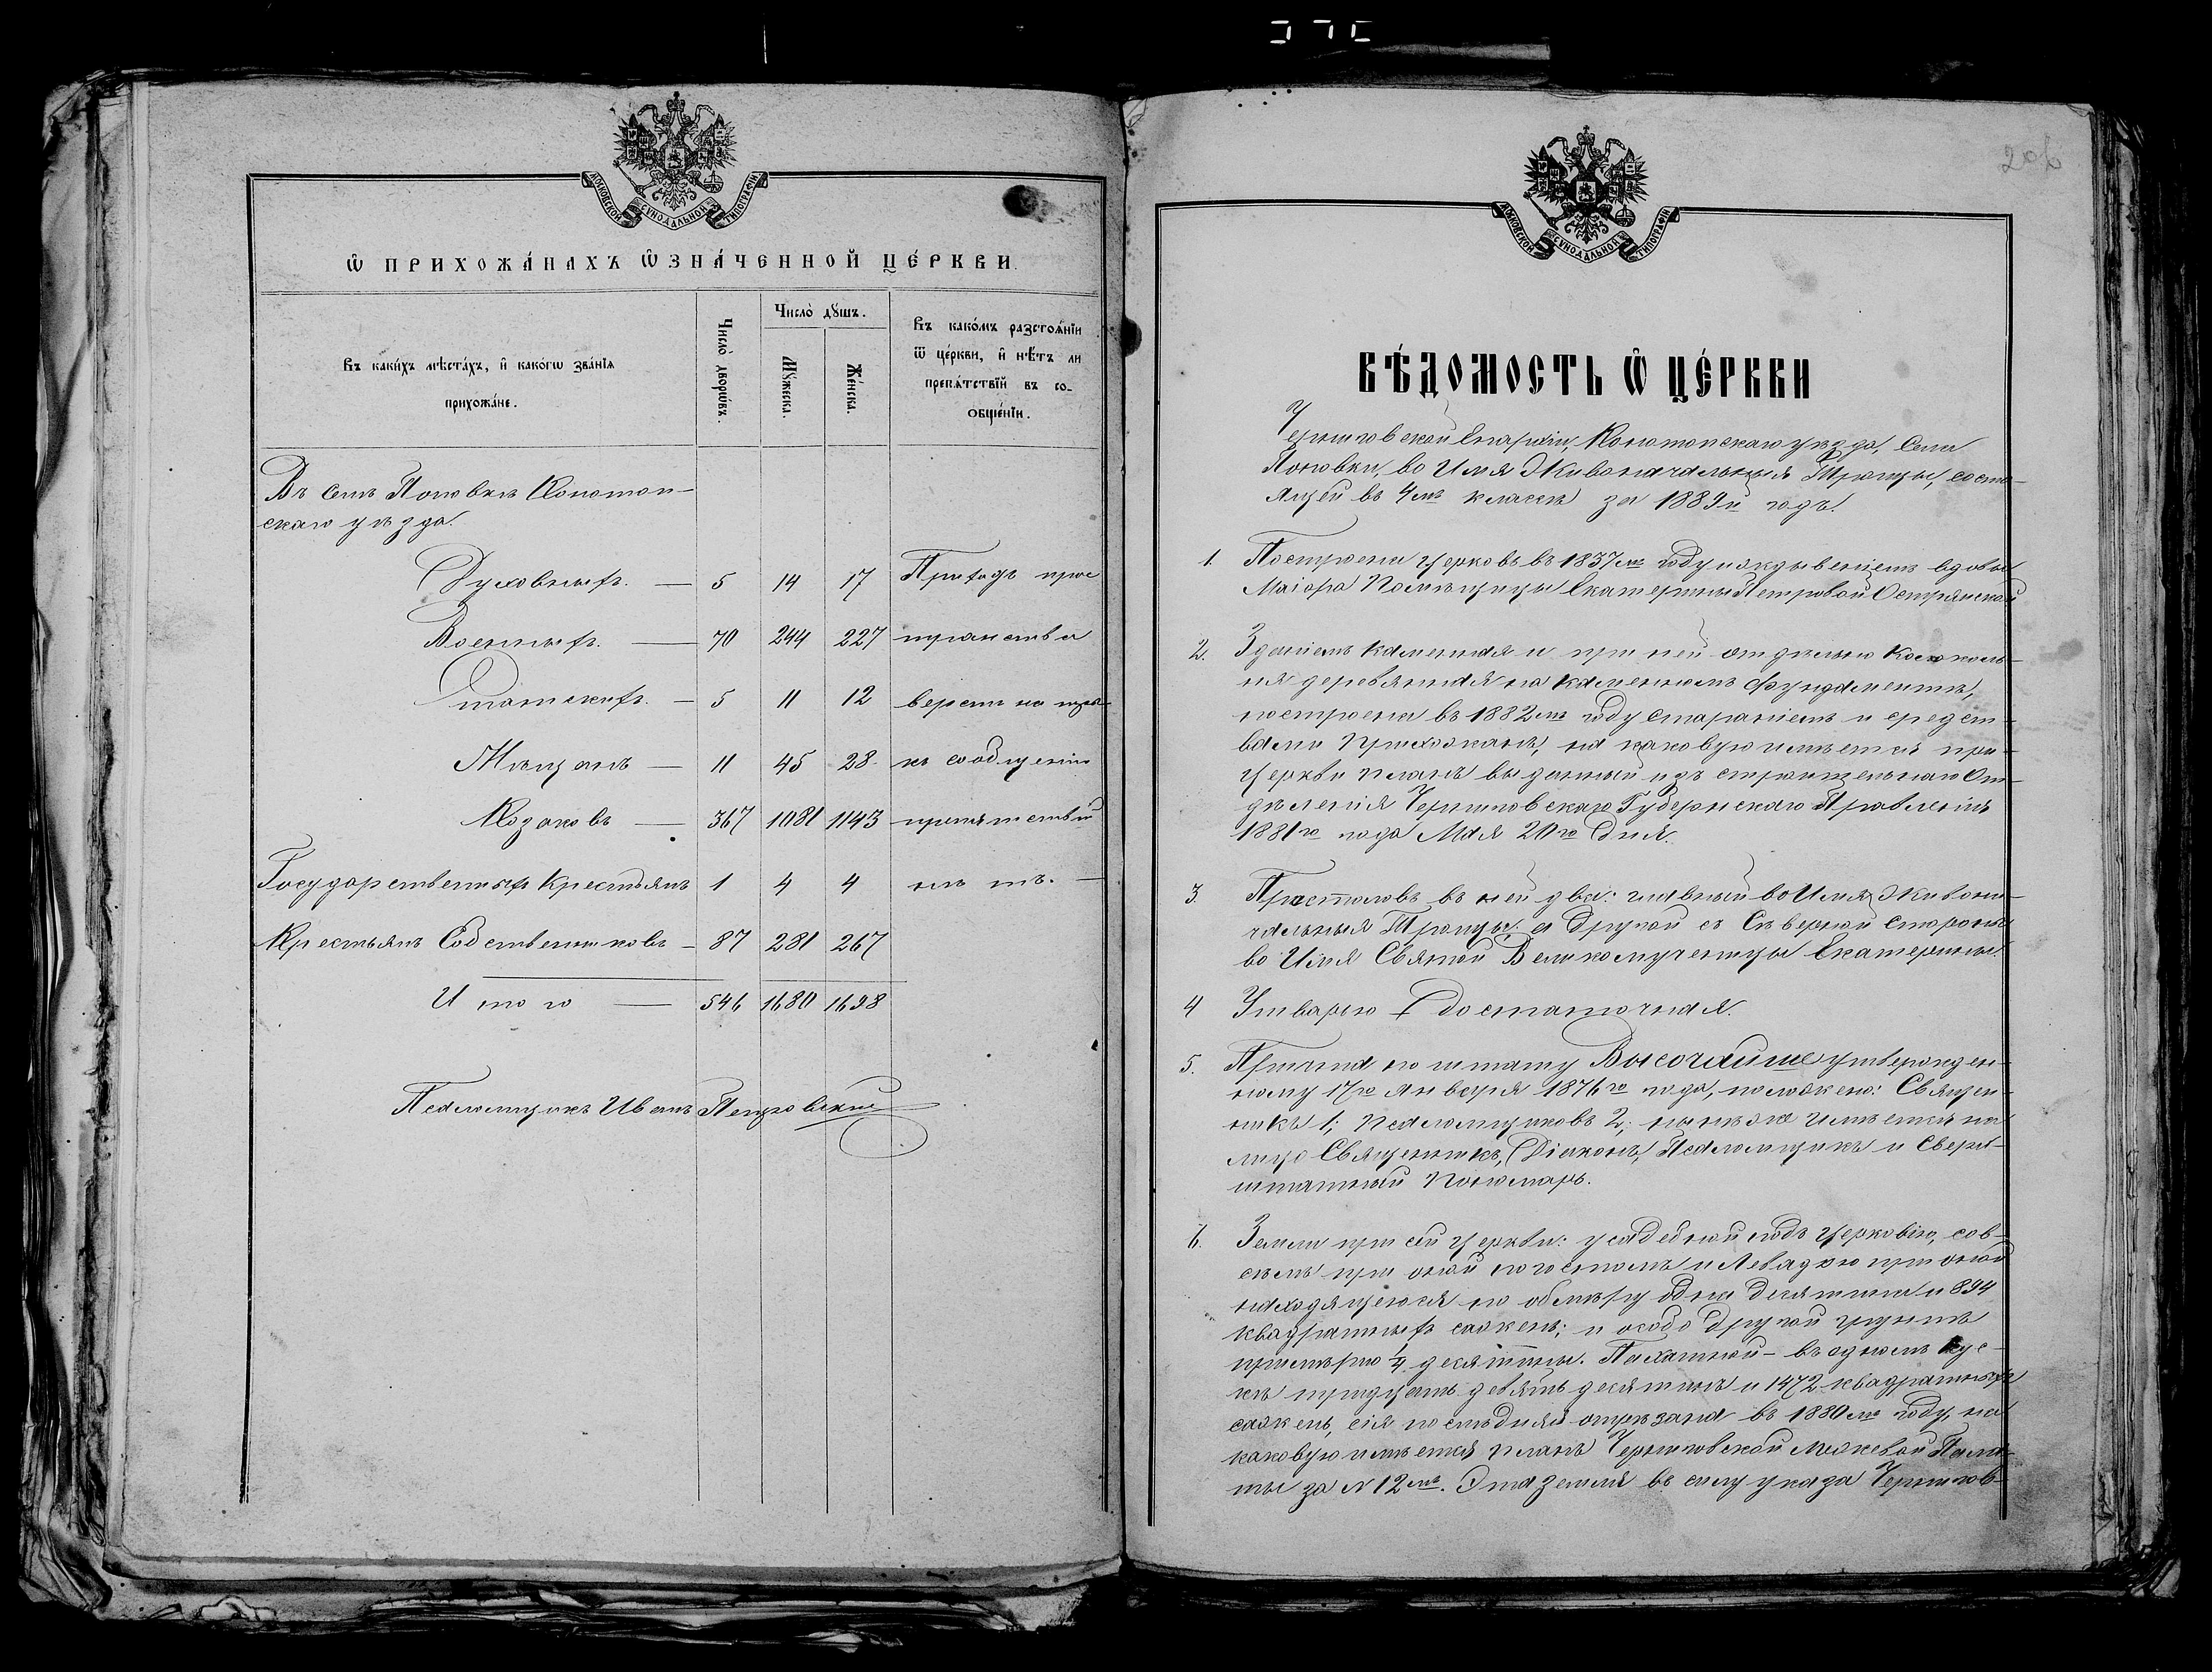 202
МОСКОВСКОЙ СѴНОДАЛЬНОЙ ТИПОГРАФІИ
Ѡ ПРИХОЖА́НАХЪ Ѡ҆ЗНА́ЧЕННОЙ ЦЕ́РКВИ.
Въ каки́хъ мѣста́хъ, и҆ како́гѡ зва́нїѧ
прихожа́не.
Число̀ дворѡ́въ.
Число̀ дꙋ́шъ.
Мꙋ́жеска.
Же́нска.
Въ како́мъ разстоѧ́нїи
ѿ це́ркви, и҆ нѣ́тъ ли
препѧ́тствїй въ со-
ѻбще́нїи.
Въ селѣ Поповкѣ Конотоп-
скаго уѣзда.
Духовныхъ. — 5 14 17 Приходъ прос
Военныхъ. — 70 244 227 транства
Статскихъ. — 5 11 12 верстъ на
Мѣщанъ — 11 45 28 къ сообщенію
Козаковъ — 367 1081 1143 препятствій
Государственныхъ Крестьянъ 1 4 4 нѣтъ. —
Крестьянъ Собственниковъ — 87 281 267
Итого — 546 1680 1698
Псаломщикъ Иванъ Петровскій
МОСКОВСКОЙ СѴНОДАЛЬНОЙ ТИПОГРАФІИ
ВѢ́ДОМОСТЬ Ѡ҆ ЦЕ́РКВИ
Черниговской Епархіи, Конотопскаго уѣзда, Села
Поповки, во Имя Живоначальныя Троицы, состо-
ящей въ 4мъ классѣ за 1889й годъ.
1. Построена церковь въ 1837мъ году иждывеніемъ вдовы
Маіора Помѣщицы Екатерины Петровой Острянской
2. Зданіемъ каменная и при ней отдѣльно колоколь-
ня деревянная на каменномъ фундаментѣ,
построена въ 1882мъ году стараніемъ и средст-
вами прихожанъ, на каковую имѣется при
церкви планъ выданный изъ строительнаго От-
дѣленія Черниговскаго Губернскаго Правленія
1881го года Мая 20го дня.
3. Престоловъ въ ней два: главный во Имя Живона-
чальныя Троицы, а другой съ Сѣверной стороны
во Имя Святой Великомученицы Екатерины.
4 Утварью достаточная.
5. Причта по штату Высочайше утвержден-
ному 17го Января 1876го года, положено: Священ-
никъ 1; Псаломщиковъ 2; нынѣ же имѣется на
лицо Священникъ, Діаконъ, Псаломщикъ и сверх-
штатный Пономарь.
6. Земли при сей церкви: усадебной подъ церковію, сов-
сѣмъ при оной погостомъ и Левадою при оной
находящеюся по обмѣру одна десятина и 894
квадратныхъ сажень; и особо другой грунтъ
примѣрно ¼ десятины. Пахатной — въ одномъ кус-
кѣ тридцать девять десятинъ и 1472 квадратныхъ
сажень, сія послѣдняя отрѣзана въ 1880мъ году, на
каковую имѣется планъ Черниговской Межевой Пала-
ты за № 12мъ. Эта земля въ силу указа Чернигов-